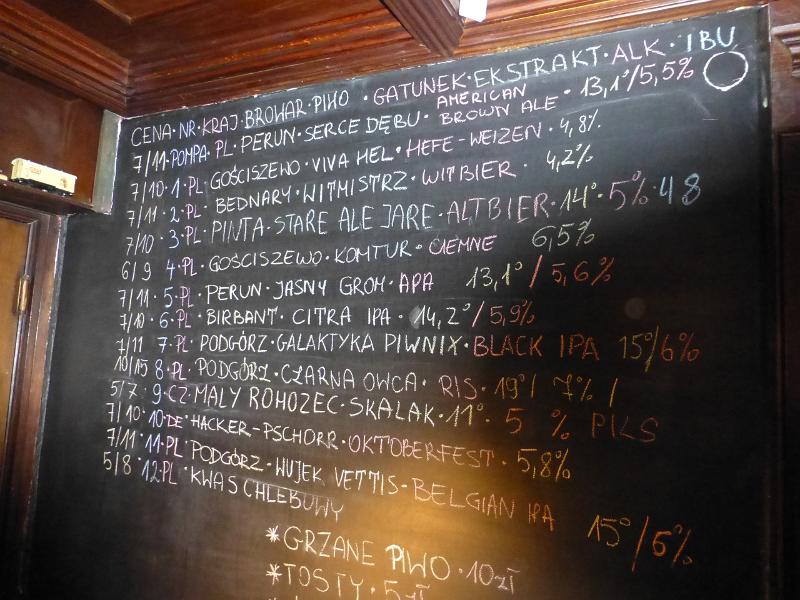 CENA · NR · KRAJ · BROWAR · PIWO · GATUNEK · EKSTRAKT · ALK · IBU
7/11 · POMPA · PL · PERUN · SERCE DĘBU · AMERICAN BROWN ALE · 13,1°/5,5%
7/10 · 1 · PL · GOŚCISZEWO · VIVA HEL · HEFE-WEIZEN · 4,8%
7/11 · 2 · PL · BEDNARY · WITMISTRZ · WITBIER · 4,2%
7/10 · 3 · PL · PINTA · STARE ALE JARE · ALTBIER · 14° · 5% · 48
6/9 4 · PL · GOŚCISZEWO · KOMTUR · CIEMNE 6,5%
7/11 · 5 · PL · PERUN · JASNY GROM · APA 13,1°/5,6%
7/10 · 6 · PL · BIRBANT · CITRA IPA · 14,2°/5,9%
7/11 7 · PL · PODGÓRZ · GALAKTYKA PIWNIX · BLACK IPA 15°/6%
10/15 8 · PL · PODGÓRZ · CZARNA OWCA · RIS · 19°/ 7% /
5/7 · 9 · CZ · MALY ROHOZEC · SKALAK · 11° · 5 % PILS
7/10 · 10 · DE · HACKER-PSCHORR · OKTOBERFEST · 5,8%
7/11 · 11 · PL · PODGÓRZ · WUJEK VETTIS - BELGIAN IPA 15°/6%
5/8 · 12 PL · KWAS CHLEBOWY
* GRZANE PIWO · 10zł
* TOSTY · 5zł